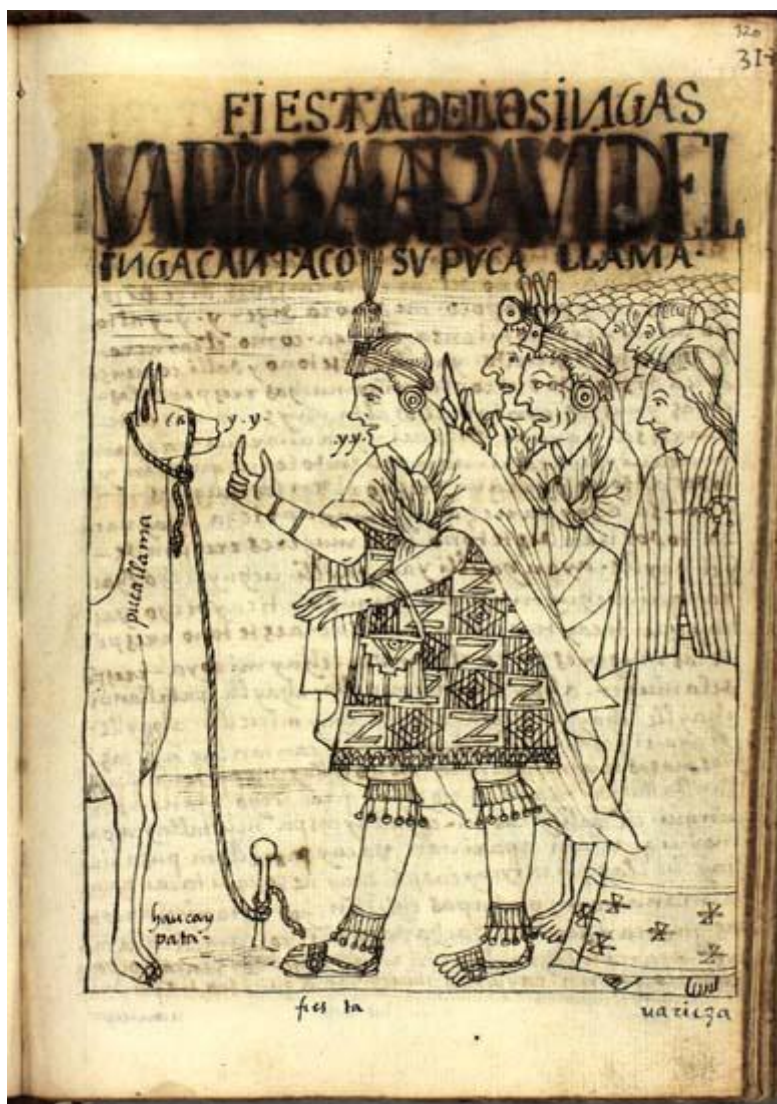 320
FIESTA DE LOS INGAS
VARICZA ARAVI DEL
INGA CANTA CO SV PVCA LLAMA
y.y
y.y.
pucallama
haucay
pata
fiesta
uaricza